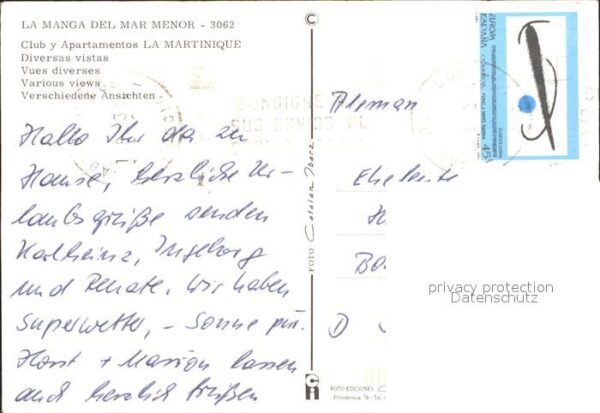 LA MANGA DEL MAR MENOR - 3062
Club y Apartamentos LA MARTINIQUE
Diversas vistas
Vues diverses
Various views
Verschiedene Ansichten
Hallo Ihr da zu
Hause, herzliche Ur-
laubsgrüße senden
Karlheinz, Ingeborg
und Renate. Wir haben
Superwetter, - Sonne pur.
Horst + Marion lassen
auch herzlich grüßen
FOTO Catalan Ibarz
FOTO EDICIONES
Providencia, 76 - Tel.
CONSIGNE
SUS ENVIOS EL
EUROPA
ESPAÑA
45
Aleman
Eheleute
H
D
privacy protection
Datenschutz